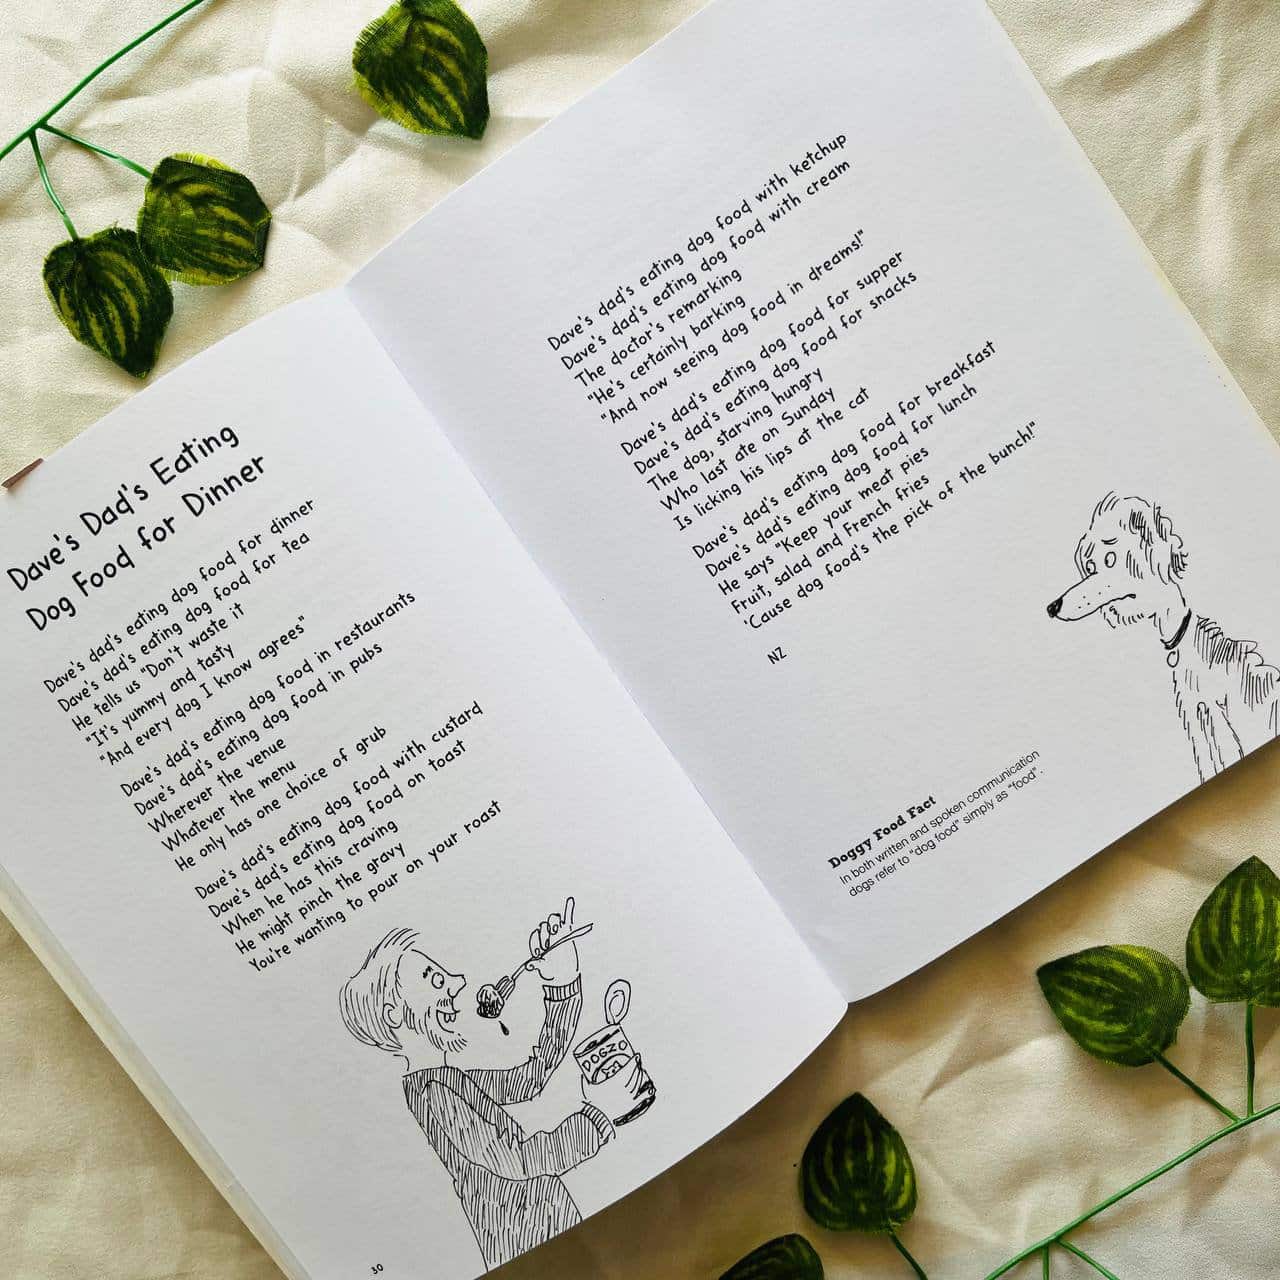 Dave's Dad's Eating
Dog Food for Dinner
Dave's dad's eating dog food for dinner
Dave's dad's eating dog food for tea
He tells us "Don't waste it
"It's yummy and tasty
"And every dog I know agrees"
Dave's dad's eating dog food in restaurants
Dave's dad's eating dog food in pubs
Wherever the venue
Whatever the menu
He only has one choice of grub
Dave's dad's eating dog food with custard
Dave's dad's eating dog food on toast
When he has this craving
He might pinch the gravy
You're wanting to pour on your roast
DOGZO
30
Dave's dad's eating dog food with ketchup
Dave's dad's eating dog food with cream
The doctor's remarking
"He's certainly barking
"And now seeing dog food in dreams!"
Dave's dad's eating dog food for supper
Dave's dad's eating dog food for snacks
The dog, starving hungry
Who last ate on Sunday
Is licking his lips at the cat
Dave's dad's eating dog food for breakfast
Dave's dad's eating dog food for lunch
He says "Keep your meat pies
Fruit, salad and French fries
'Cause dog food's the pick of the bunch!"
NZ
Doggy Food Fact
In both written and spoken communication
dogs refer to "dog food" simply as "food".